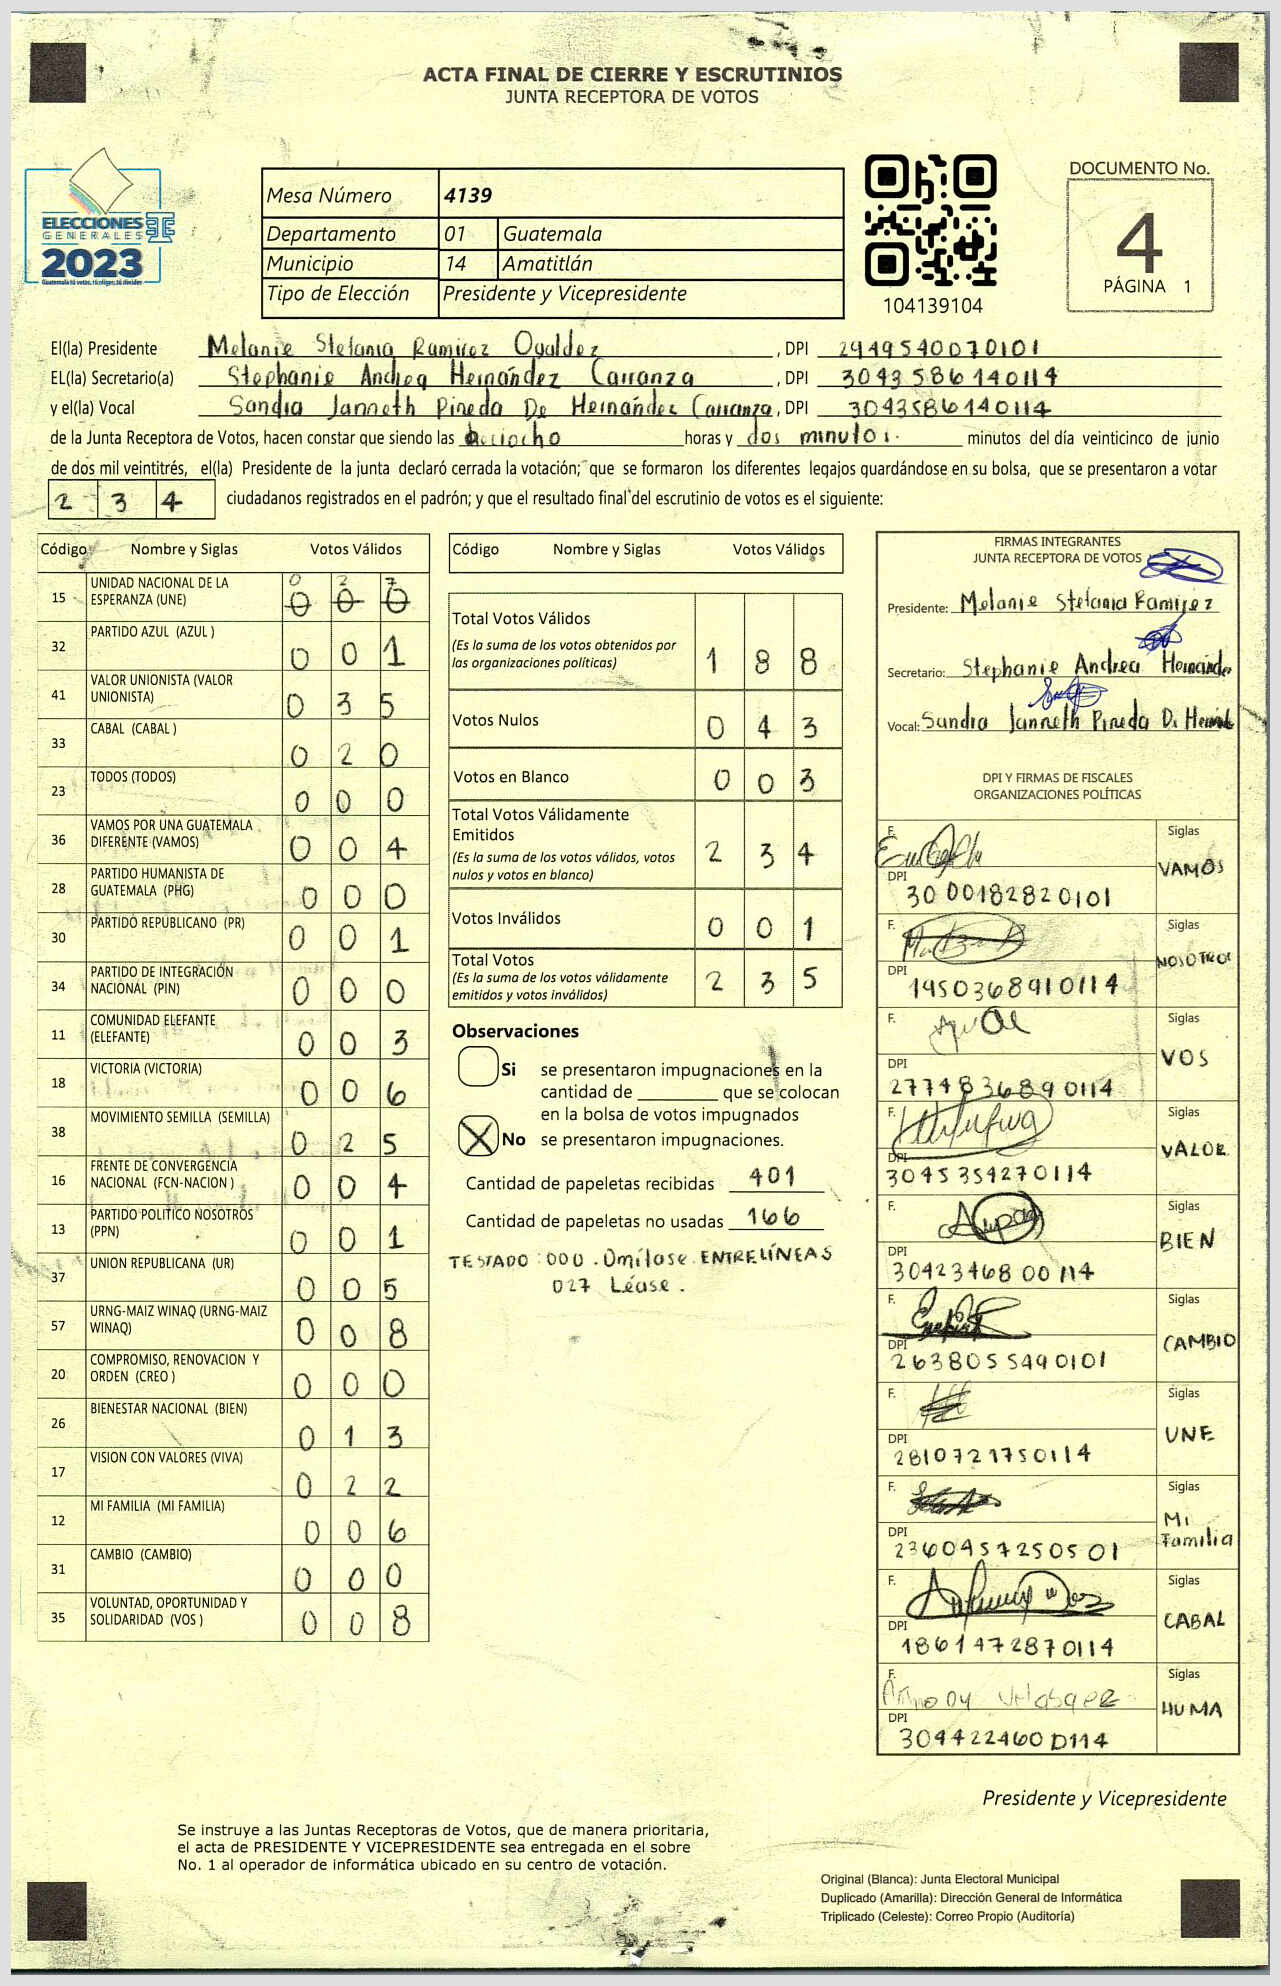 ACTA FINAL DE CIERRE Y ESCRUTINIOS
JUNTA RECEPTORA DE VOTOS
ELECCIONES
GENERALES
2023
Mesa Número 4139
Departamento 01 Guatemala
Municipio 14 Amatitlán
Tipo de Elección Presidente y Vicepresidente
104139104
DOCUMENTO No.
4
PÁGINA 1
El(la) Presidente Melanie Stefania Ramirez Ovaldez, DPI 2949540070101
EL(la) Secretario(a) Stephanie Andrea Hernández Carranza, DPI 3043586140114
y el(la) Vocal Sandra Janneth Pineda De Hernández Carranza, DPI 3043586140114
de la Junta Receptora de Votos, hacen constar que siendo las dieciocho horas y dos minutos. minutos del día veinticinco de junio
de dos mil veintitrés, el(la) Presidente de la junta declaró cerrada la votación; que se formaron los diferentes legajos quardándose en su bolsa, que se presentaron a votar
2 3 4 ciudadanos registrados en el padrón; y que el resultado final del escrutinio de votos es el siguiente:
Código Nombre y Siglas Votos Válidos
15 UNIDAD NACIONAL DE LA ESPERANZA (UNE) 0 2 7
0 0 0
32 PARTIDO AZUL (AZUL ) 0 0 1
41 VALOR UNIONISTA (VALOR UNIONISTA) 0 3 5
33 CABAL (CABAL ) 0 2 0
23 TODOS (TODOS) 0 0 0
36 VAMOS POR UNA GUATEMALA DIFERENTE (VAMOS) 0 0 4
28 PARTIDO HUMANISTA DE GUATEMALA (PHG) 0 0 0
30 PARTIDO REPUBLICANO (PR) 0 0 1
34 PARTIDO DE INTEGRACIÓN NACIONAL (PIN) 0 0 0
11 COMUNIDAD ELEFANTE (ELEFANTE) 0 0 3
18 VICTORIA (VICTORIA) 0 0 6
38 MOVIMIENTO SEMILLA (SEMILLA) 0 2 5
16 FRENTE DE CONVERGENCIA NACIONAL (FCN-NACION ) 0 0 4
13 PARTIDO POLITICO NOSOTROS (PPN) 0 0 1
37 UNION REPUBLICANA (UR) 0 0 5
57 URNG-MAIZ WINAQ (URNG-MAIZ WINAQ) 0 0 8
20 COMPROMISO, RENOVACION Y ORDEN (CREO ) 0 0 0
26 BIENESTAR NACIONAL (BIEN) 0 1 3
17 VISION CON VALORES (VIVA) 0 2 2
12 MI FAMILIA (MI FAMILIA) 0 0 6
31 CAMBIO (CAMBIO) 0 0 0
35 VOLUNTAD, OPORTUNIDAD Y SOLIDARIDAD (VOS ) 0 0 8
Código Nombre y Siglas Votos Válidos
Total Votos Válidos
(Es la suma de los votos obtenidos por
las organizaciones políticas) 1 8 8
Votos Nulos 0 4 3
Votos en Blanco 0 0 3
Total Votos Válidamente
Emitidos
(Es la suma de los votos válidos, votos
nulos y votos en blanco) 2 3 4
Votos Inválidos 0 0 1
Total Votos
(Es la suma de los votos válidamente
emitidos y votos inválidos) 2 3 5
Observaciones
Si se presentaron impugnaciones en la
cantidad de ________ que se colocan
en la bolsa de votos impugnados
No se presentaron impugnaciones.
Cantidad de papeletas recibidas 401
Cantidad de papeletas no usadas 166
TESTADO: 000. Omítase. ENTRELÍNEAS
027 Léase.
FIRMAS INTEGRANTES
JUNTA RECEPTORA DE VOTOS
Presidente: Melanie Stefania Ramirez
Secretario: Stephanie Andrea Hernández
Vocal: Sandra Janneth Pineda D.
DPI Y FIRMAS DE FISCALES
ORGANIZACIONES POLÍTICAS
F. Siglas
VAMOS
DPI
30 00182820101
F. Siglas
NOSOTROS
DPI
1950368910114
F. Siglas
VOS
DPI
2774836890114
F. Siglas
VALOR
DPI
3045354270114
F. Siglas
BIEN
DPI
3042346800114
F. Siglas
CAMBIO
DPI
2638055490101
F. Siglas
UNE
DPI
2810721750114
F. Siglas
Mi
Familia
DPI
2360457250501
F. Siglas
CABAL
DPI
1861472870114
F. Siglas
HUMA
DPI
3044224600114
Presidente y Vicepresidente
Se instruye a las Juntas Receptoras de Votos, que de manera prioritaria,
el acta de PRESIDENTE Y VICEPRESIDENTE sea entregada en el sobre
No. 1 al operador de informática ubicado en su centro de votación.
Original (Blanca): Junta Electoral Municipal
Duplicado (Amarilla): Dirección General de Informática
Triplicado (Celeste): Correo Propio (Auditoría)